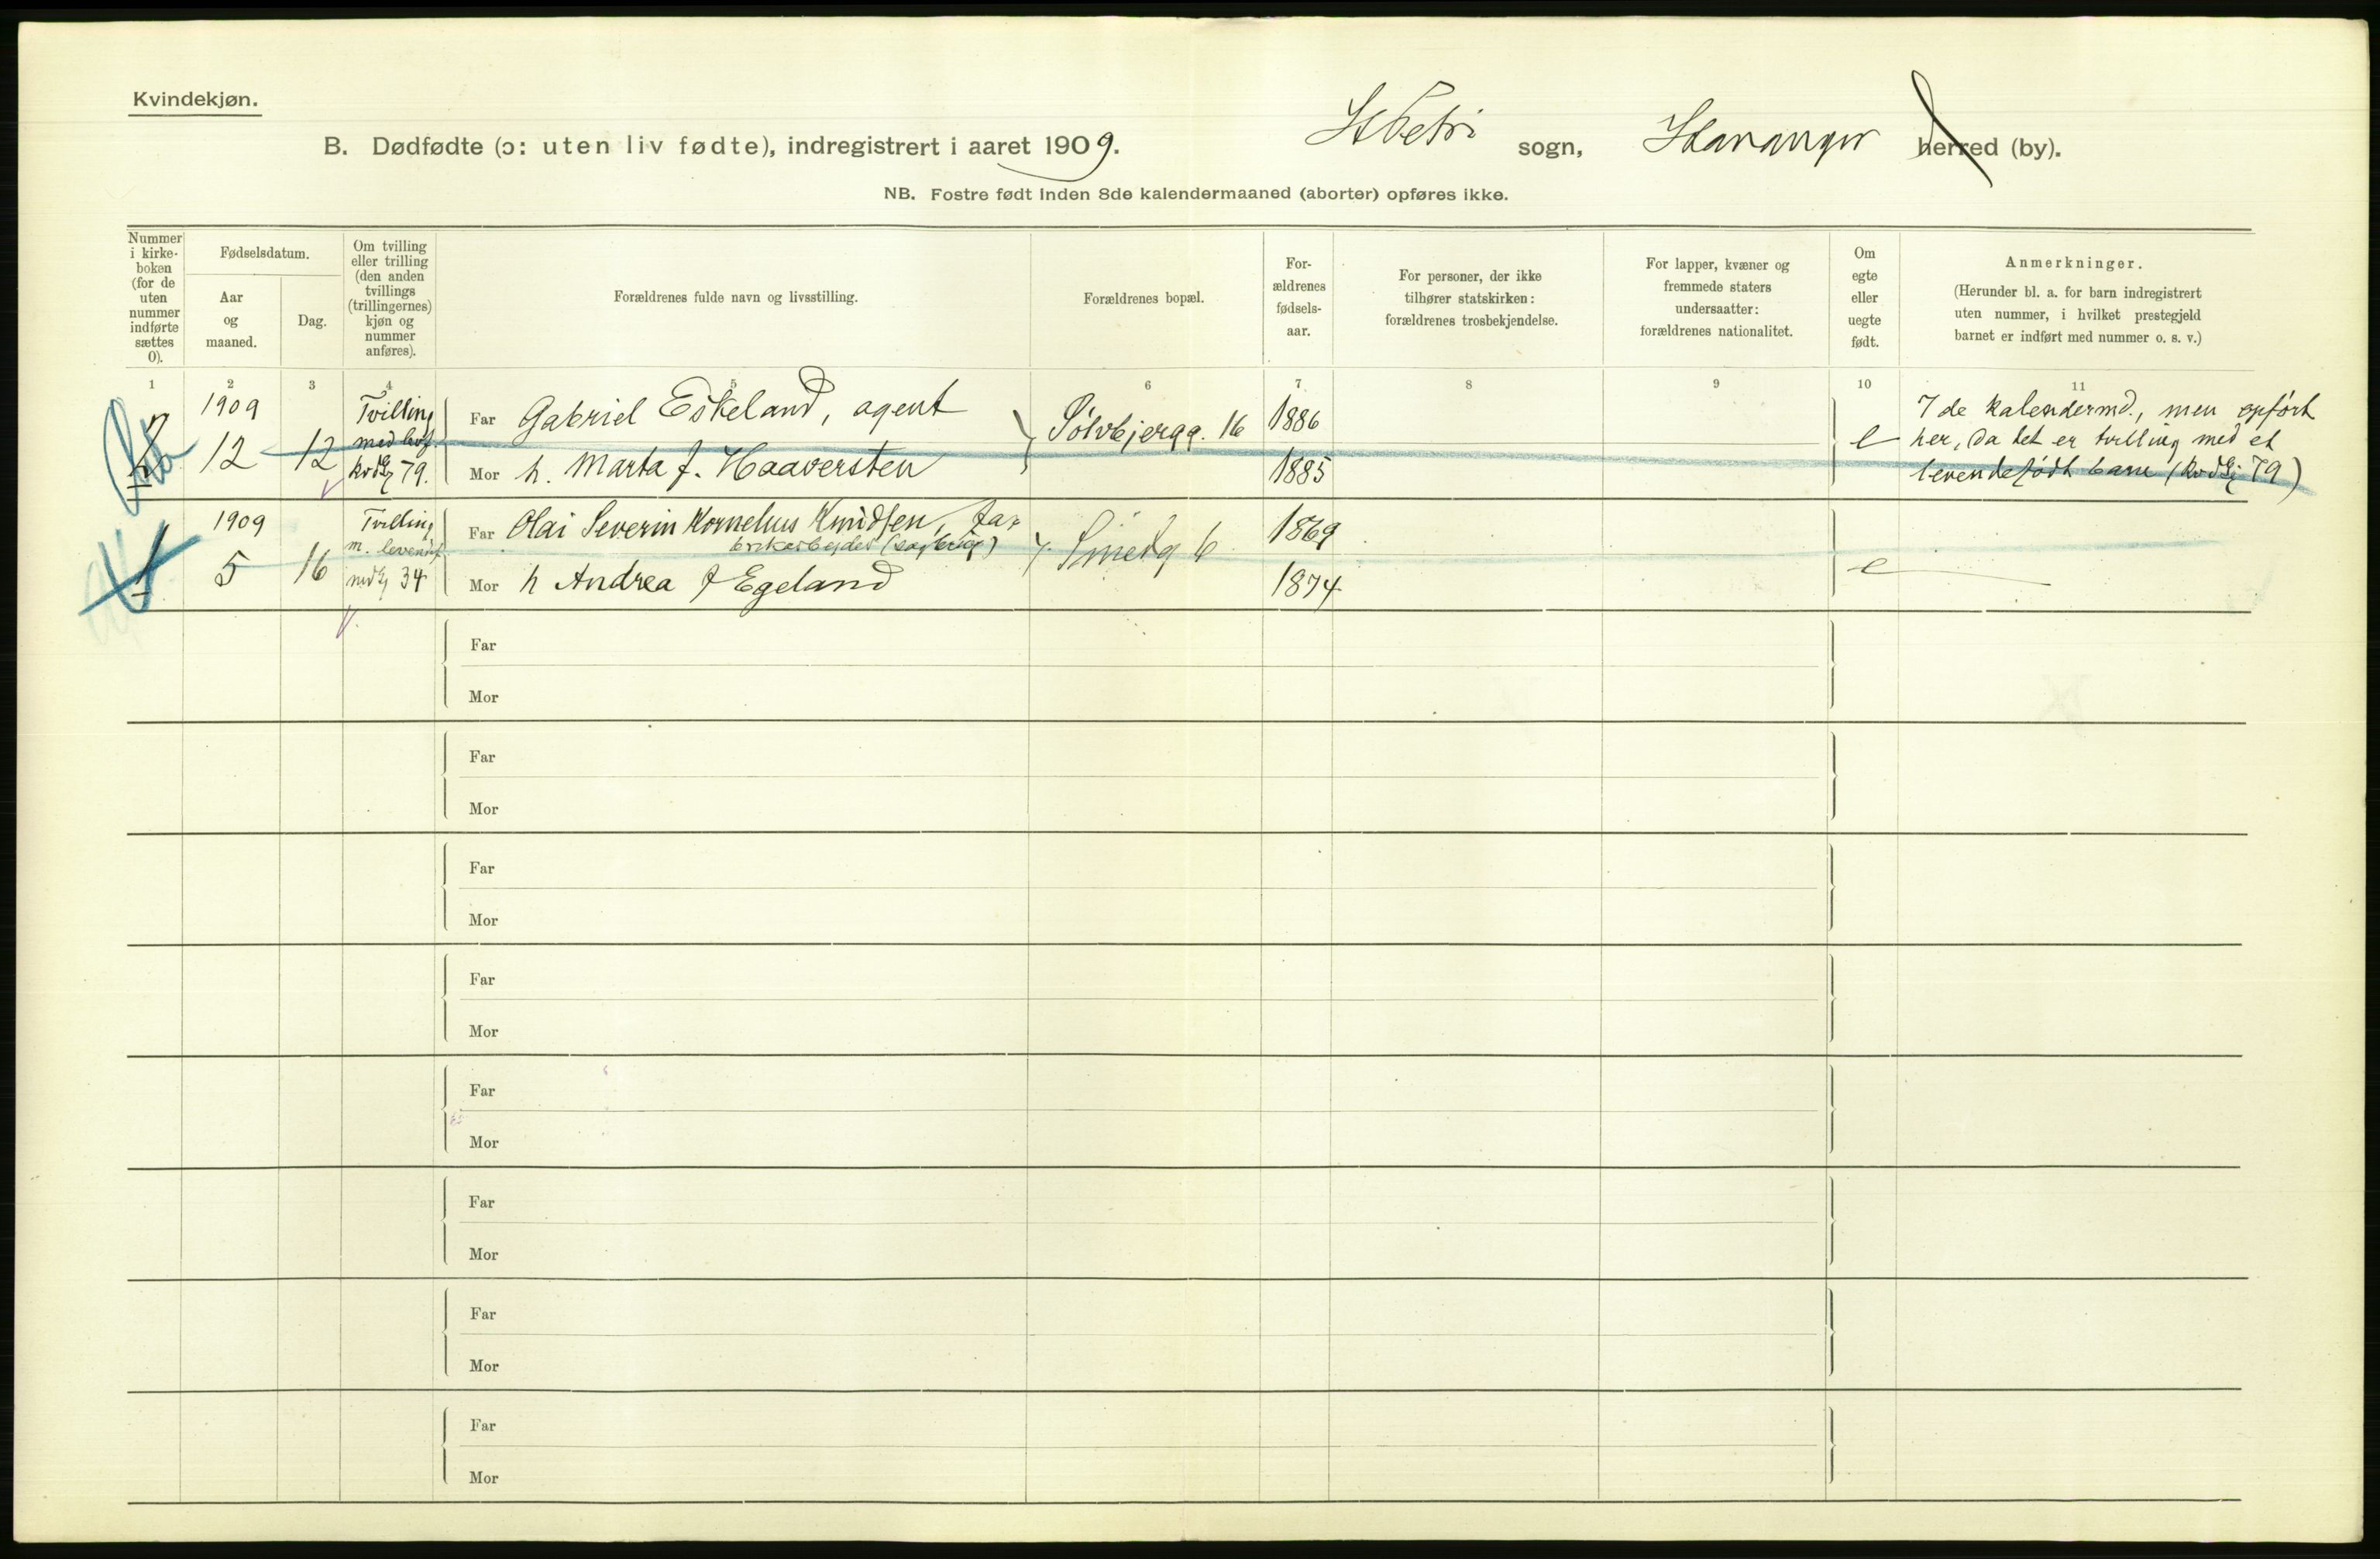 Kvindekjøn.
B. Dødfødte (ɔ: uten liv fødte), indregistrert i aaret 1909.
St Petri sogn, Stavanger herred (by).
NB. Fostre født inden 8de kalendermaaned (aborter) opføres ikke.
Nummer
i kirke-
boken
(for de
uten
nummer
indførte
sættes
0).
Fødselsdatum.
Aar
og
maaned.
Dag.
Om tvilling
eller trilling
(den anden
tvillings
(trillingernes)
kjøn og
nummer
anføres).
Forældrenes fulde navn og livsstilling.
Forældrenes bopæl.
For-
ældrenes
fødsels-
aar.
For personer, der ikke
tilhører statskirken:
forældrenes trosbekjendelse.
For lapper, kvæner og
fremmede staters
undersaatter:
forældrenes nationalitet.
Om
egte
eller
uegte
født.
Anmerkninger.
(Herunder bl. a. for barn indregistrert
uten nummer, i hvilket prestegjeld
barnet er indført med nummer o. s. v.)
1 2 3 4 5 6 7 8 9 10 11
2
1909
12
12
Tvilling
med levf.
kvdkj 79.
Far Gabriel Eskeland, agent
Mor h. Marta f. Haaversten
Sølvbjergg. 16
1886
1885
e
7 de kalendermd., men opført
her, da det er tvilling med et
levendefødt barn (kvdkj 79)
1
1909
5
16
Tvilling
m. levendf.
mdkj 34
Far Olai Severin Kornelius Knudsen, fa-
brikarbejder
Mor h Andrea f Egeland
Smedg 6
1869
1874
e
Far
Mor
Far
Mor
Far
Mor
Far
Mor
Far
Mor
Far
Mor
Far
Mor
Far
Mor